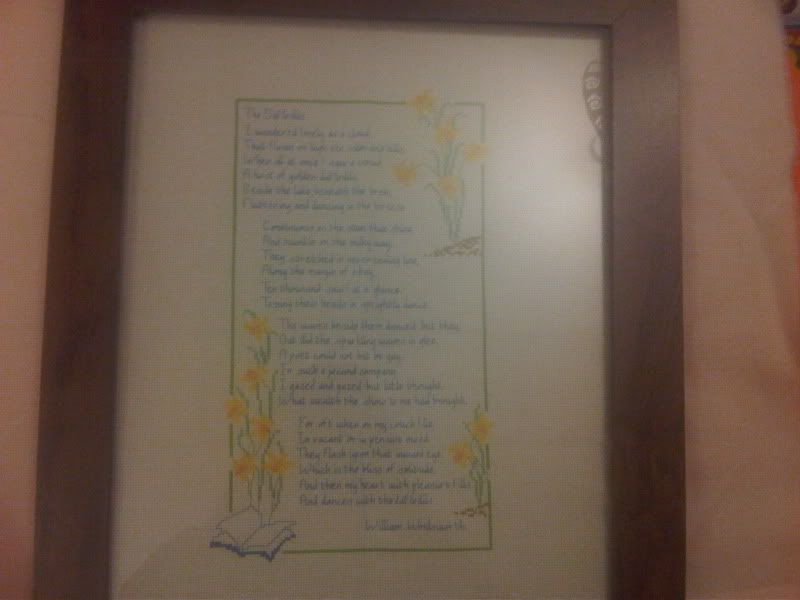 The Daffodils
I wandered lonely as a cloud
That floats on high o'er vales and hills,
When all at once I saw a crowd
A host of golden daffodils,
Beside the lake beneath the trees,
Fluttering and dancing in the breeze.
Continuous as the stars that shine
And twinkle on the milky way,
They stretched in never-ending line,
Along the margin of a bay.
Ten thousand saw I at a glance,
Tossing their heads in sprightly dance.
The waves beside them danced but they
Out did the sparkling waves in glee.
A poet could not but be gay,
In such a jocund company.
I gazed and gazed but little thought,
What wealth the show to me had brought.
For oft when on my couch I lie,
In vacant or in pensive mood.
They flash upon that inward eye,
Which is the bliss of solitude.
And then my heart with pleasure fills
And dances with the daffodils.
William Wordsworth.